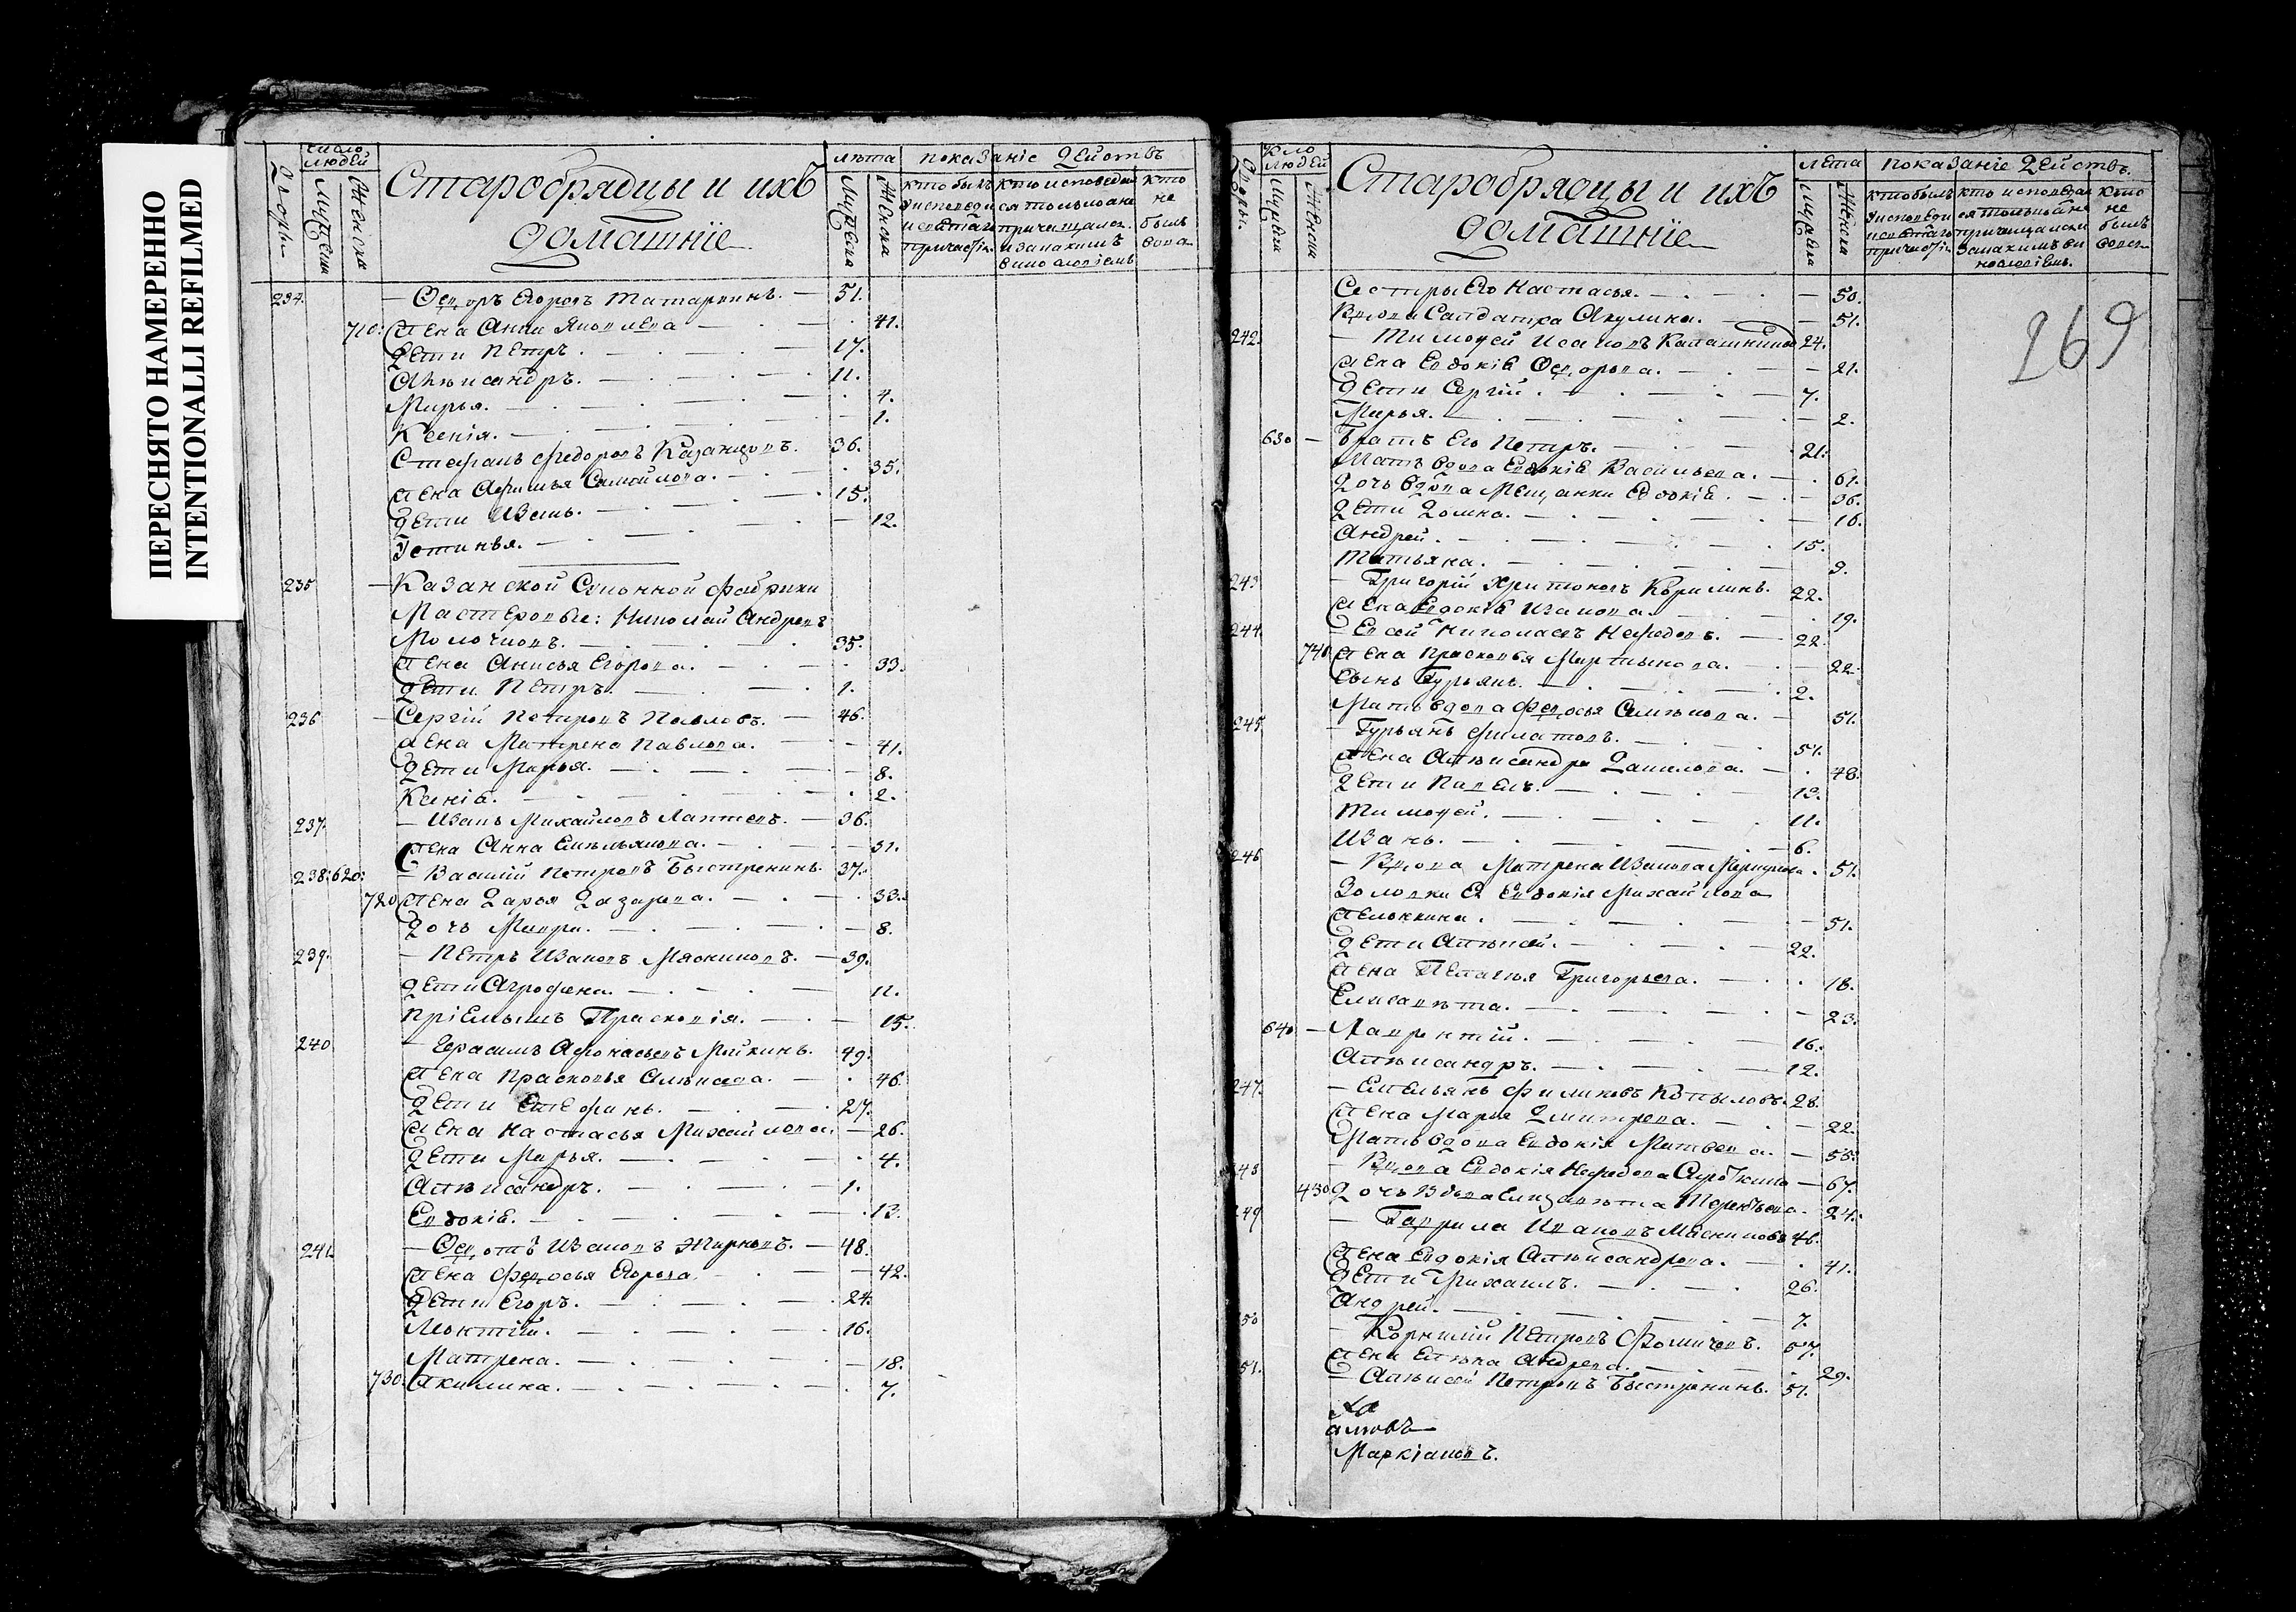 ПЕРЕСНЯТО НАМЕРЕННО
INTENTIONALLI REFILMED
число людей
лѣта
показаніе дѣйствъ
Дворы
Мужеска
Женска
Старобрядцы и ихъ
домашніе
Мужеска
Женска
кто былъ
кто исповедал
кто
не
былъ
234.
Ѳедоръ Егоровъ Татаринъ. 51.
710. Жена Анна Яковлева 41.
Дети Петръ. 17.
Александръ. 11.
Марья. 4.
Ксенія. 1.
Стефанъ Федоровъ Казанцовъ. 36.
Жена Афимья Самойлова. 35.
Дети Иванъ. 15.
Устинья. 12.
235 Казанской Суконной фабрики
Мастеровые: Николай Андреевъ
Молочновъ. 35.
Жена Анисья Егорова. 33.
Дети Петръ. 1.
236 Сергій Петровъ Павловъ. 46.
Жена Матрена Павлова. 41.
Дети Марья. 8.
Ксеніѣ. 2.
237. Иванъ Михайловъ Лаптевъ. 36.
Жена Анна Емельянова. 31.
238. 620. Василій Петровъ Быстренинъ. 37.
720 Жена Дарья Лазарева. 33.
Дочь Мавра. 8.
239. Петръ Ивановъ Маскиновъ. 39.
Дети Агрофена. 11.
Пріемышъ Прасковія. 15.
240 Герасимъ Афонасьевъ Майкинъ. 49.
Жена Прасковья Алексеева. 46.
Дети Стефанъ. 27.
Жена Настасья Михайлова. 26.
Дети Марья. 4.
Александръ. 1.
Евдокіѣ. 13.
241. Ѳедотъ Ивановъ Жарковъ. 48.
Жена Федосья Егорова. 42.
Дети Егоръ. 24.
Леонтій. 16.
Матрена. 18.
730. Акилина. 7.
людей
лѣта
показаніе дѣйствъ.
Дворы.
Мужеска
Женска
Старобрядцы и ихъ
домашніе
Мужеска
Женска
кто былъ
кто исповедал
кто
не
былъ
269
Сестры Его Настасья. 50.
Вдова Салдатка Акулина. 51.
242. Тимофей Исаковъ Калашниковъ 24.
Жена Евдокіѣ Ѳедорова. 21.
Дети Сергій. 7.
Марья. 2.
630 Братъ Его Петръ. 21.
Мать вдова Евдокіѣ Васильева. 61.
Дочь вдова Мещанка Евдокіѣ. 36.
Дети Домна. 16.
Андрей. 15.
Татьяна. 9.
243 Григорій Харитоновъ Кириминъ. 22.
Жена Евдокіѣ Иванова. 19.
244. Евсей Николаевъ Нефедовъ. 22.
740 Жена Прасковья Мартынова. 22.
Сынъ Гурьянъ. 2.
Мать вдова Федосья Семенова. 51.
245 Гурьянъ Филатовъ. 51.
Жена Александра Данилова. 48.
Дети Павелъ. 13.
Тимофей. 11.
Иванъ. 6.
246 Вдова Матрена Иванова 51.
Золовка Ея Евдокія Михайлова
51.
Дети Алексей. 22.
Жена Пелагея Григорьева. 18.
Елисавета. 23.
640 Лаврентій. 16.
Александръ. 12.
247. Емельянъ Филиповъ Копыловъ. 28.
Жена Марья Дмитрева. 22.
Мать вдова Евдокія Матвеева. 55.
48 Вдова Евдокія Нефедова 67.
Дочь Вдова Елизавета Терентьева. 24.
249 Гаврила Ивановъ Маскиновъ 46.
Жена Евдокія Александрова. 41.
Дети Михаилъ. 26.
Андрей. 7.
50 Корнилій Петровъ Фомичевъ. 57.
Жена Елена Андрева. 29.
51. Алексей Петровъ Быстренинъ. 51.
Маркіановъ.